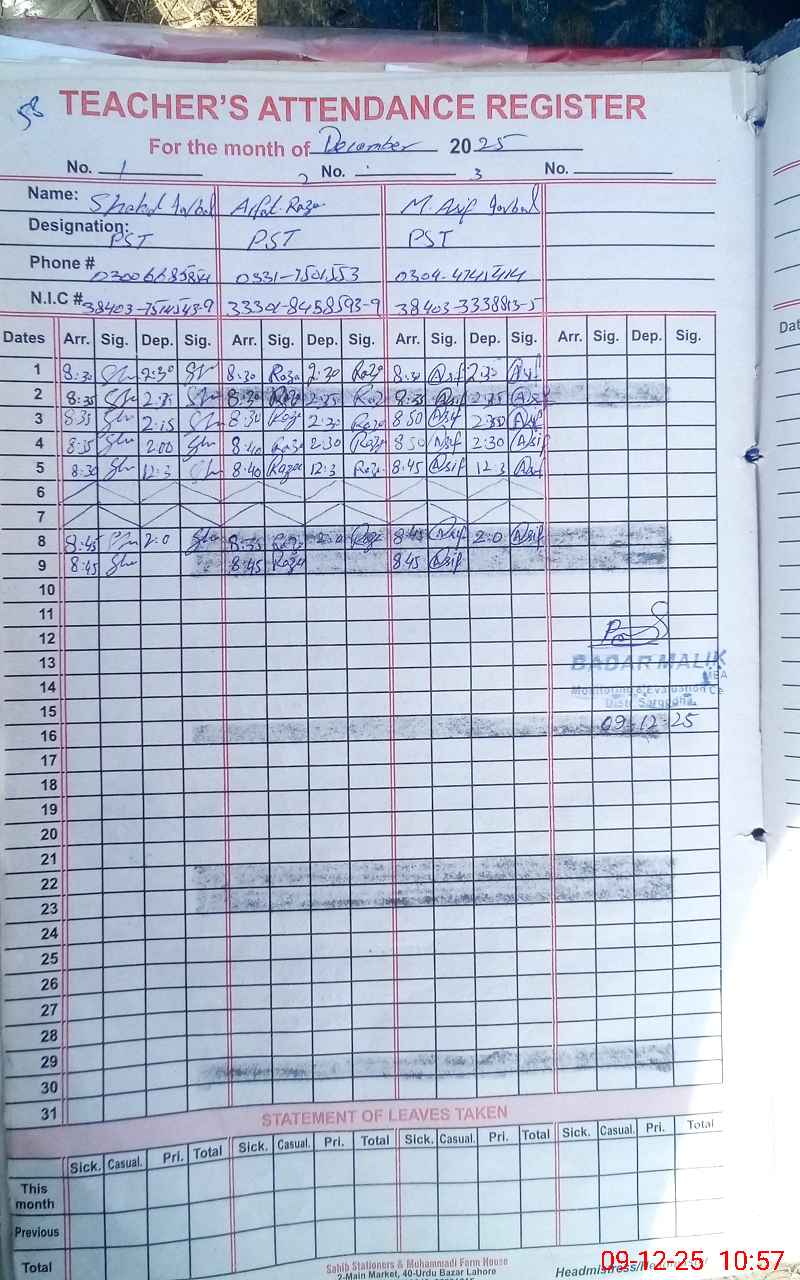 58
TEACHER'S ATTENDANCE REGISTER
For the month of December 2025
No. 1 2 No. 3 No.
Name: Shahid Iqbal Arfat Raza M. Asif Iqbal
Designation: PST PST PST
Phone # 0331-7501553 0304-4741414
N.I.C # 38403-7514543-9 33301-8458593-9 38403-3338813-5
Dates Arr. Sig. Dep. Sig. Arr. Sig. Dep. Sig. Arr. Sig. Dep. Sig. Arr. Sig. Dep. Sig.
1 8:30 2:30 8:30 Raza 2:30 Raza 8:30 Asif 2:30 Asif
2 8:35 8:30 Raza Raza 8:35 Asif Asif
3 8:35 2:15 8:30 Raza 2:30 Raza 8:50 Asif 2:30 Asif
4 8:35 2:00 8:40 Raza 2:30 Raza 8:50 Asif 2:30 Asif
5 8:30 12:3 8:40 Raza 12:3 Raza 8:45 Asif 12:3 Asif
6
7
8 8:45 2:0 8:35 Raza 2:0 Raza 8:45 Asif 2:0 Asif
9 8:45 8:45 Raza 8:45 Asif
10
11
12
13
BADAR MALIK
MEA
14
Monitoring & Evaluation Ce
15
Distt Sargodha
09-12-25
16
17
18
19
20
21
22
23
24
25
26
27
28
29
30
31
STATEMENT OF LEAVES TAKEN
Sick. Casual. Pri. Total Sick. Casual. Pri. Total Sick. Casual. Pri. Total Sick. Casual. Pri. Total
This month
Previous
Total
Sahib Stationers & Muhammadi Form House
2-Main Market, 40-Urdu Bazar Lahore
Headmistress/
09-12-25 10:57